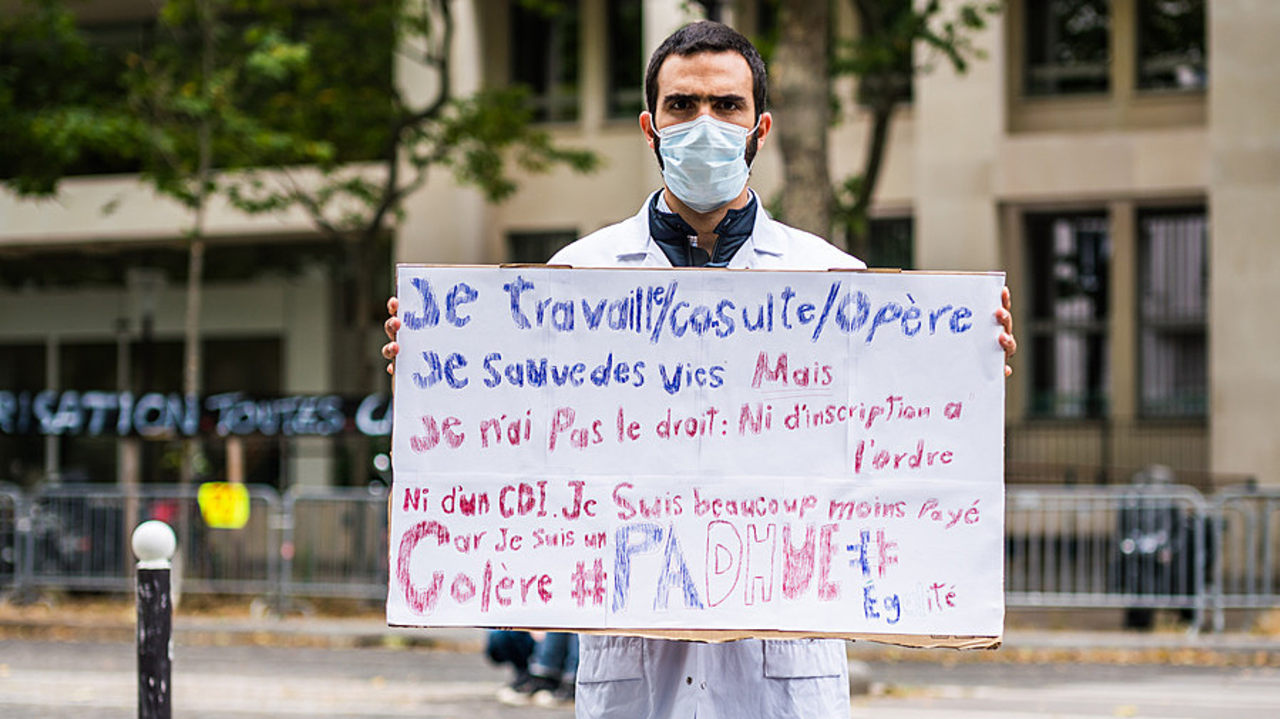 Je travaille/cosulte/Opère
Je sauve des vies Mais
Je n'ai Pas le droit: Ni d'inscription a
l'ordre
Ni d'un CDI. Je Suis beaucoup moins Payé
Car Je suis un #PADHUE##
Colère Égalité
RISATION TOUTES